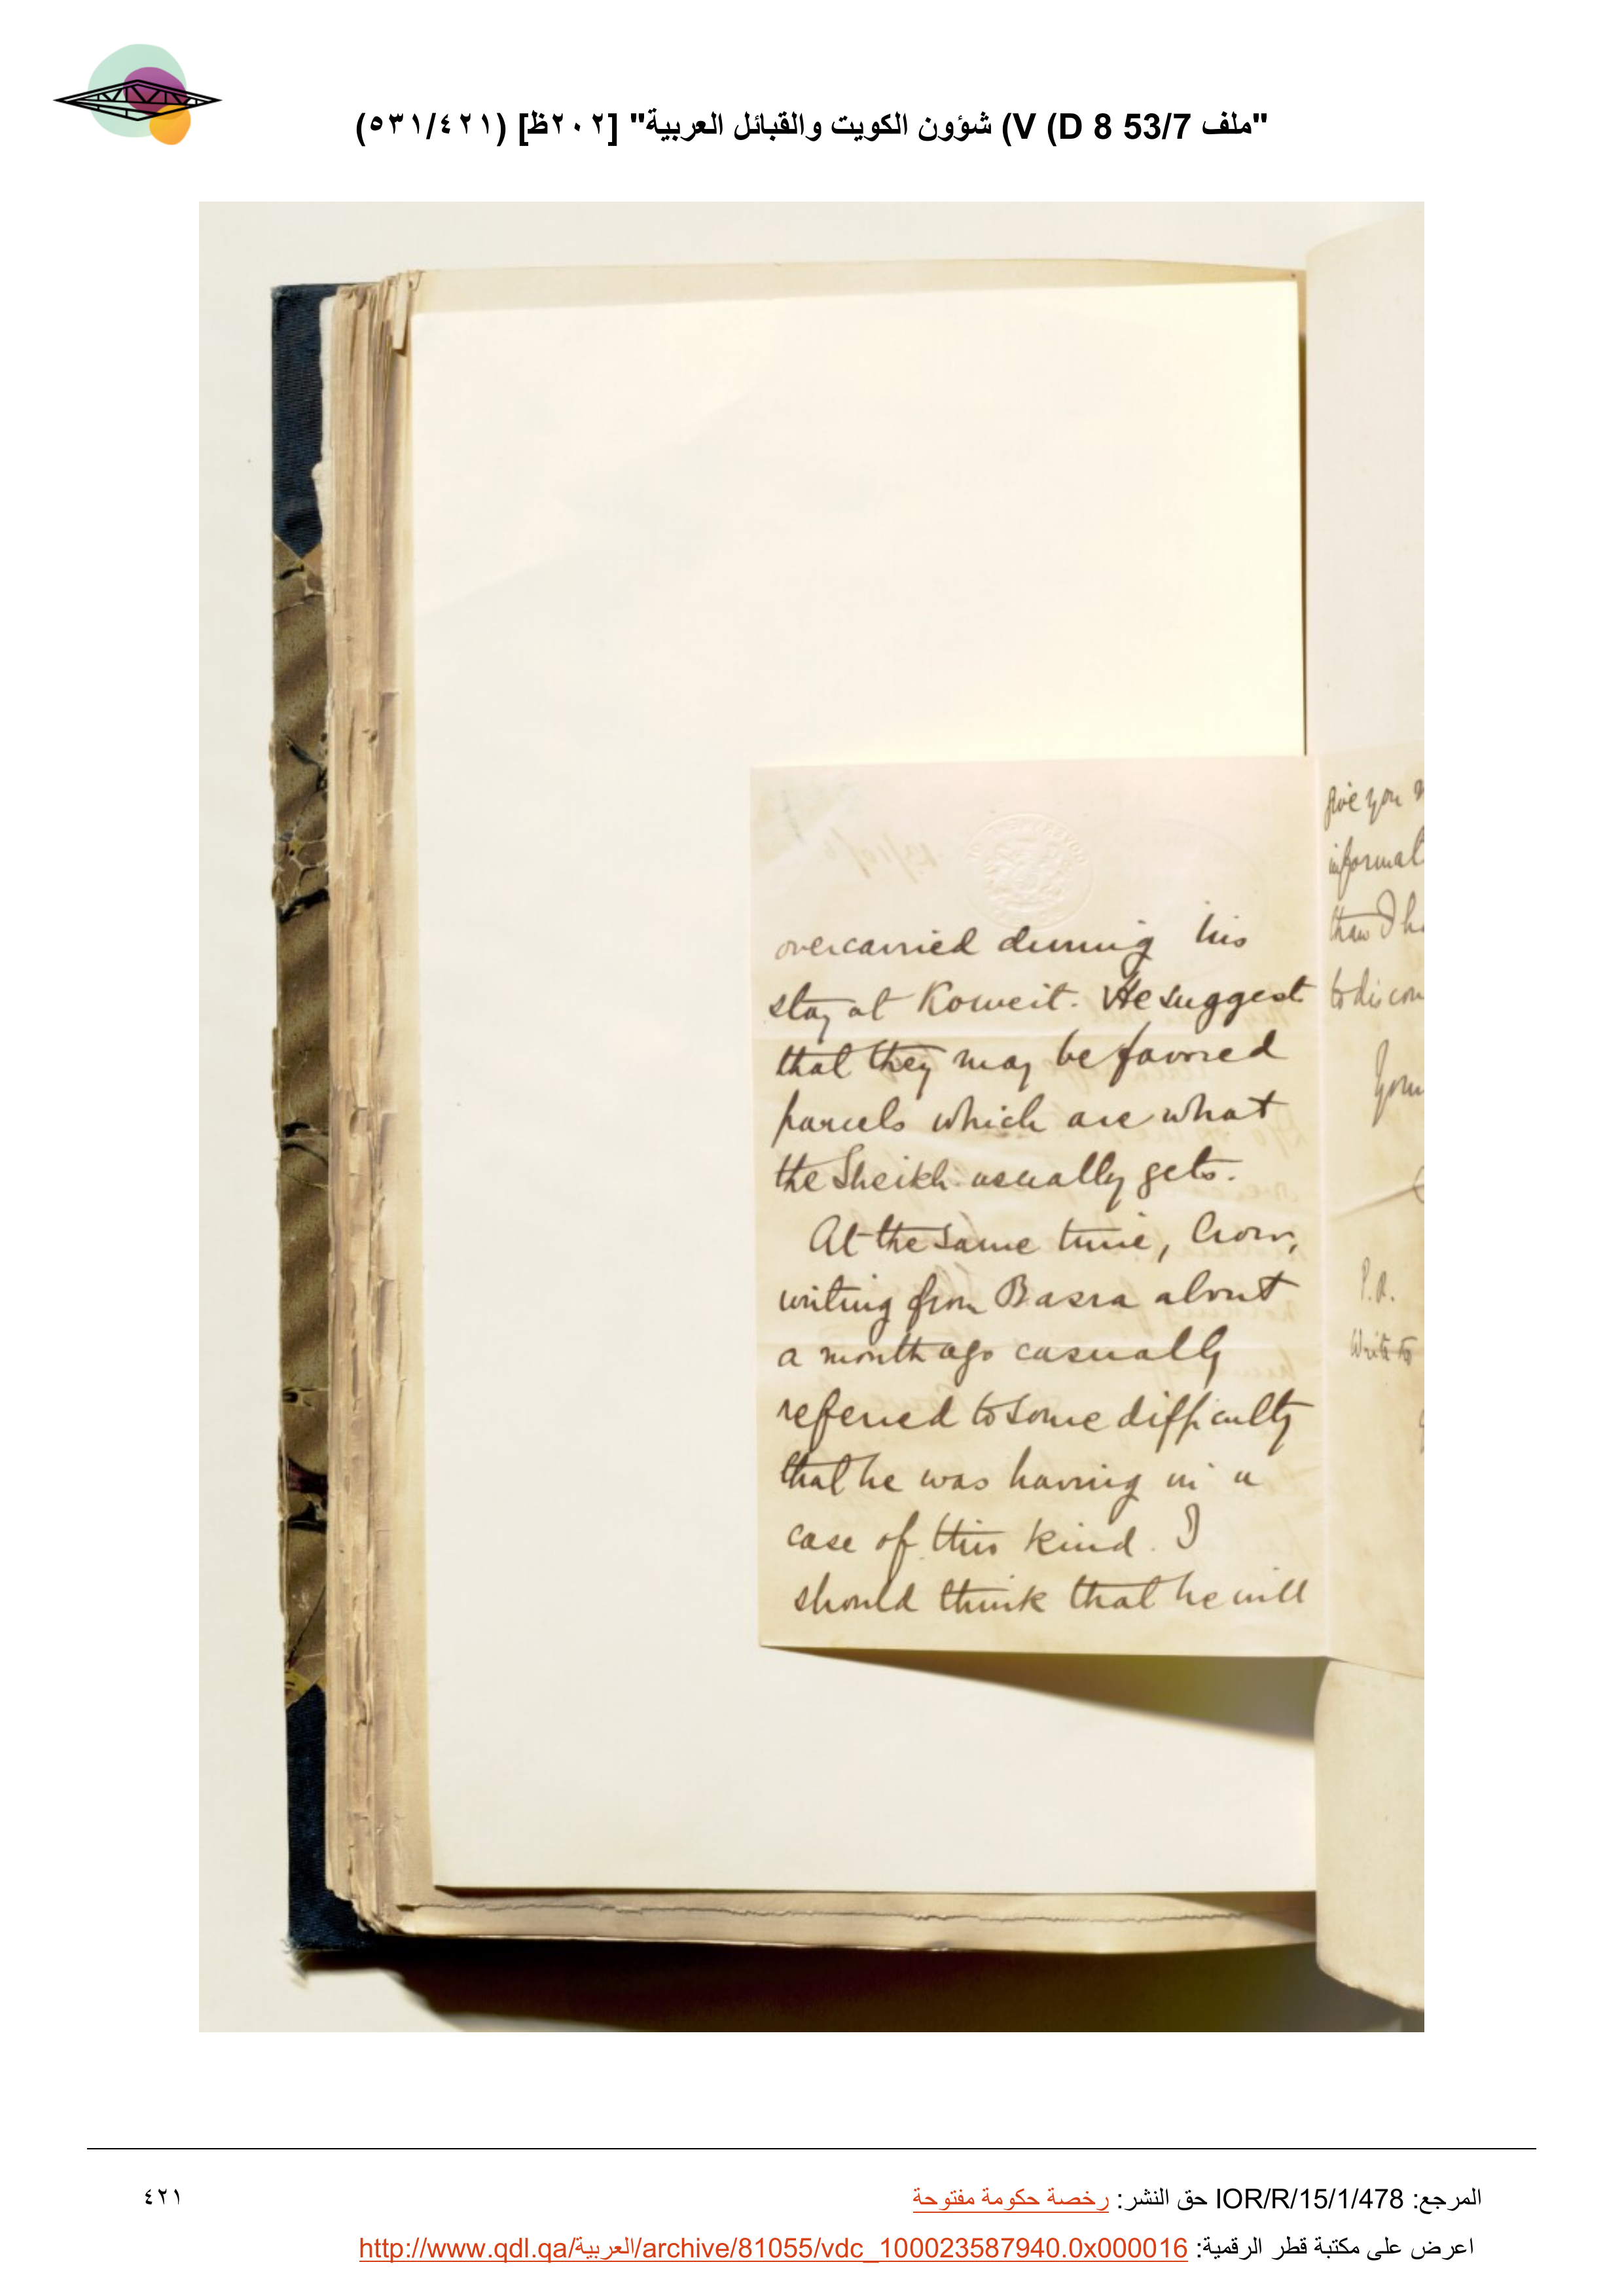 "ملف 53/7 D 8) V) شؤون الكويت والقبائل العربية" [٢٠٢ظ] (٥٣١/٤٢١)
overcarried during his
stay at Koweit. He suggest
that they may be favored
parcels which are what
the Sheikh usually gets.
At the same time, Crow,
writing from Basra about
a month ago casually
referred to some difficulty
that he was having in a
case of this kind. I
should think that he will
give you
informat
than I h
to discov
Your
P.R.
Write to
المرجع: IOR/R/15/1/478 حق النشر: رخصة حكومة مفتوحة
٤٢١
اعرض على مكتبة قطر الرقمية: http://www.qdl.qa/العربية/archive/81055/vdc_100023587940.0x000016